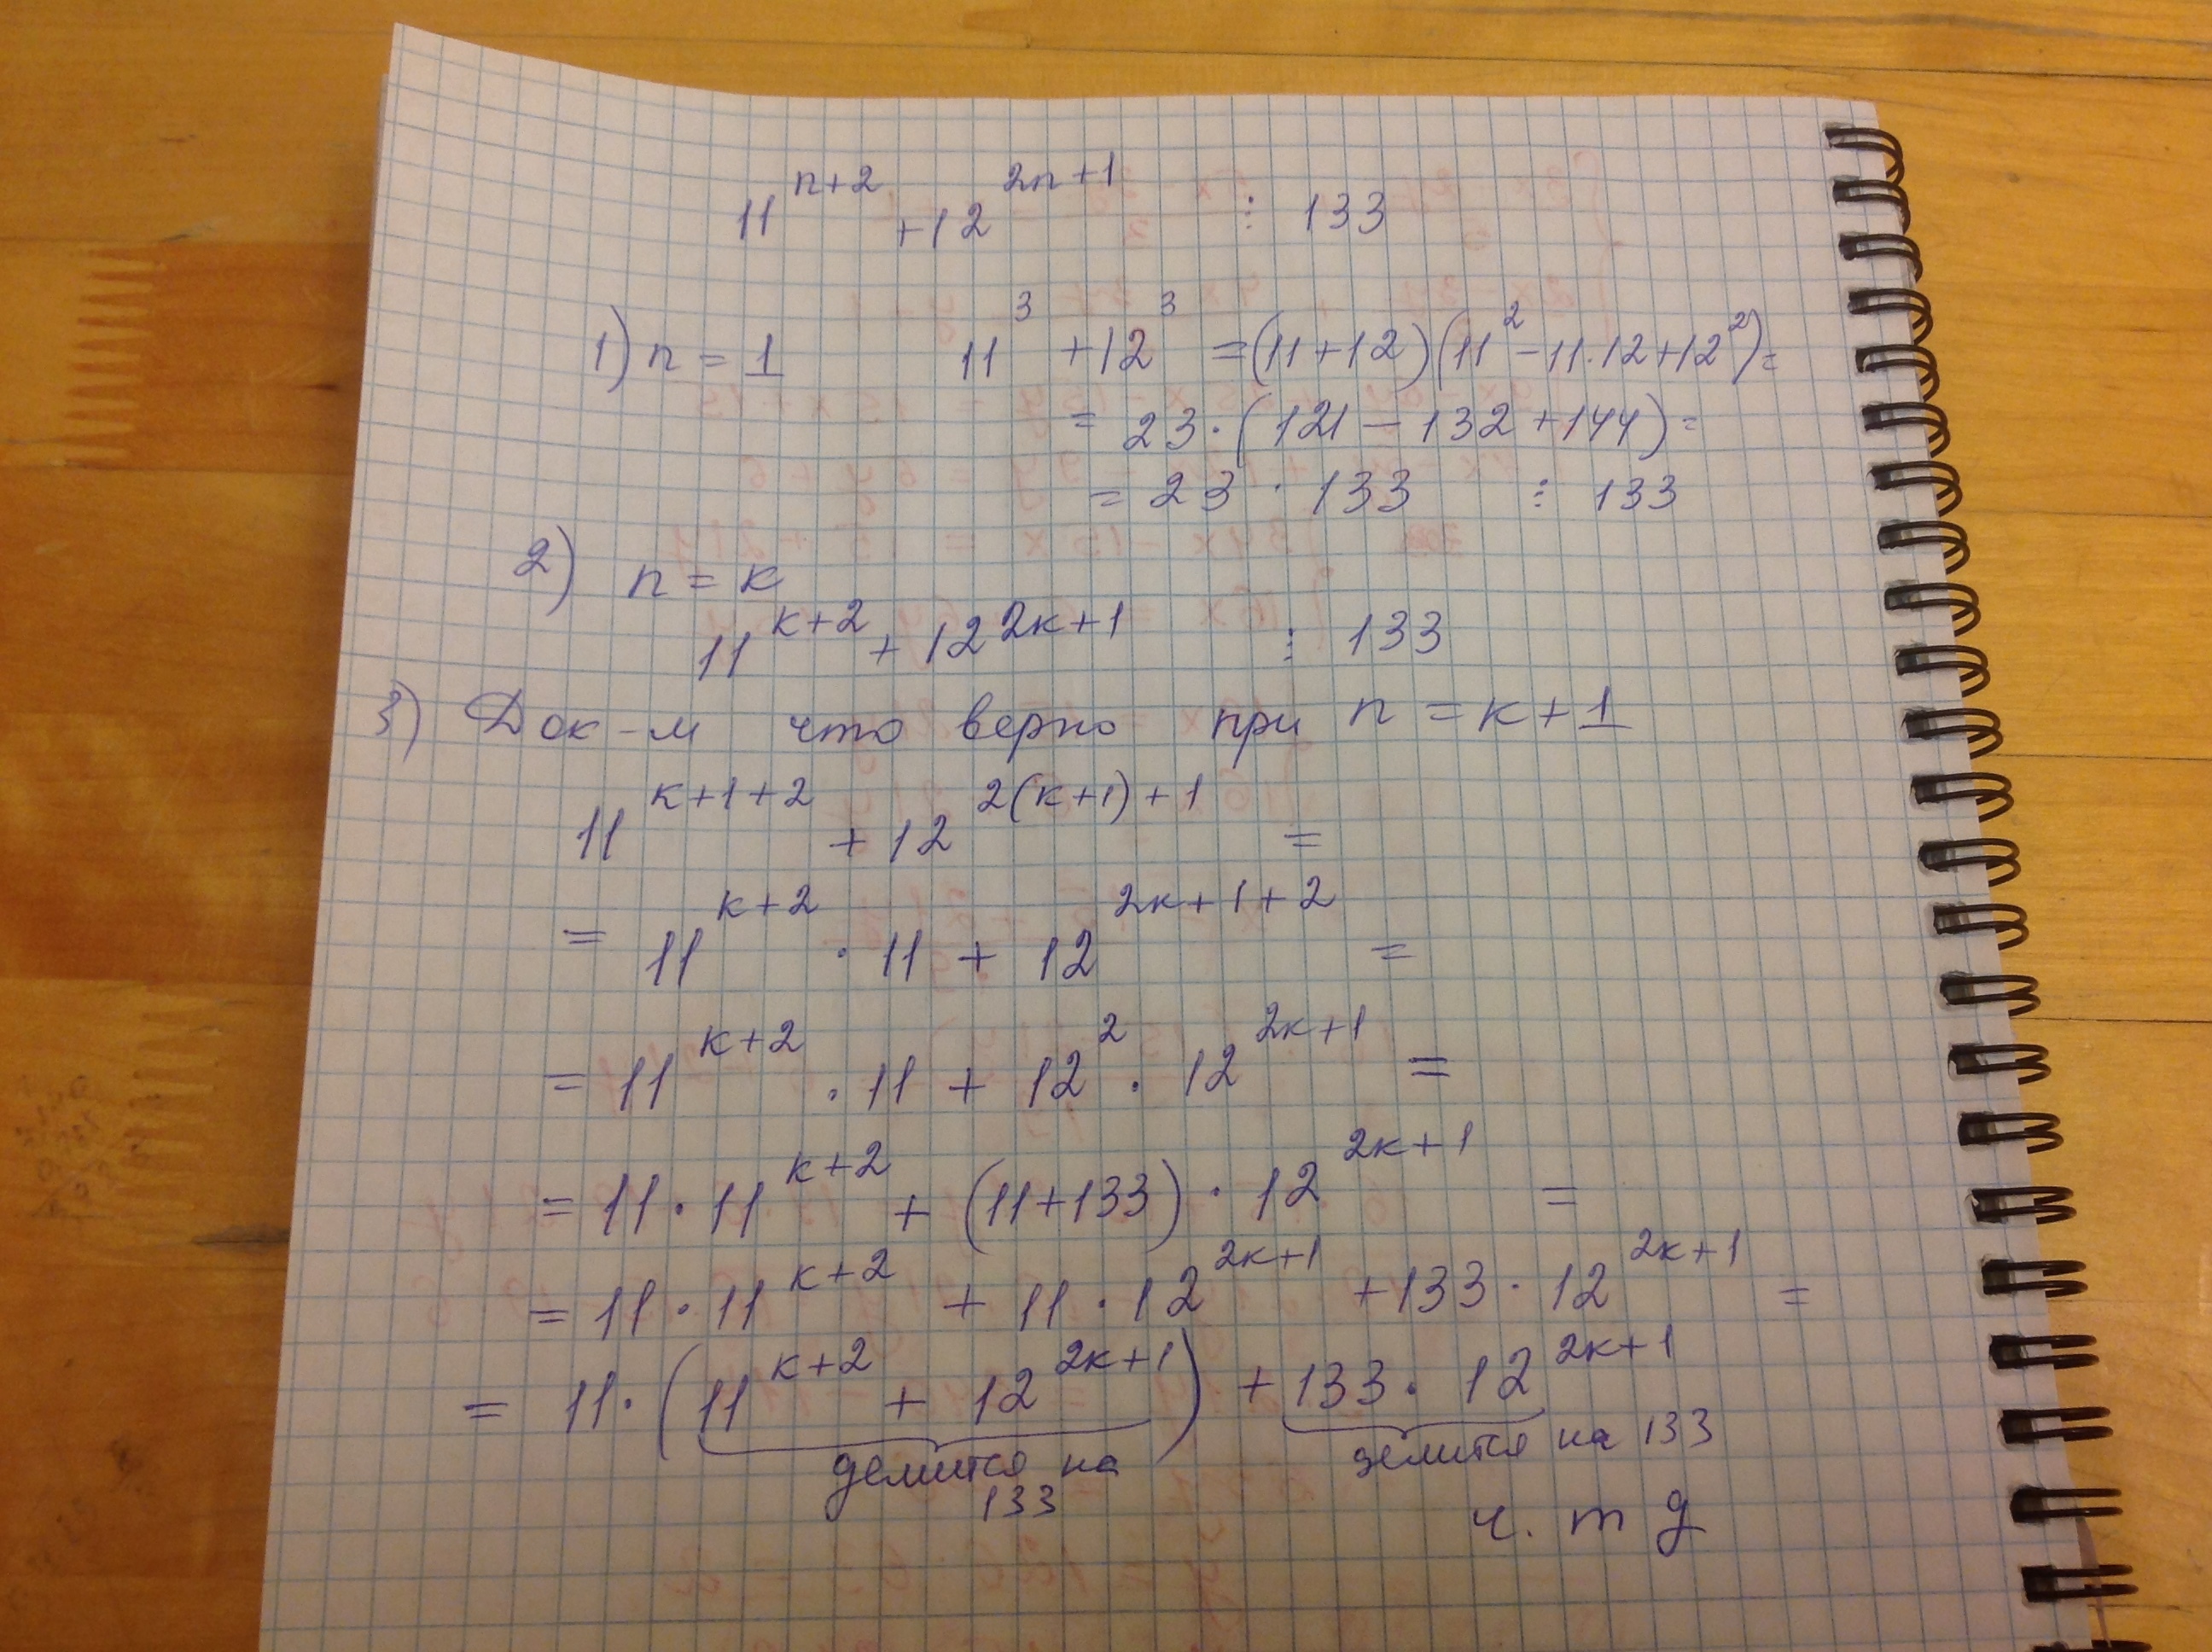 11^{n+2} + 12^{2n+1} ⋮ 133
1) n = 1 11^3 + 12^3 = (11+12)(11^2 - 11·12 + 12^2) =
= 23·(121 - 132 + 144) =
= 23 · 133 ⋮ 133
2) n = к
11^{к+2} + 12^{2к+1} ⋮ 133
3) Док-м что верно при n = к + 1
11^{к+1+2} + 12^{2(к+1)+1} =
= 11^{к+2} · 11 + 12^{2к+1+2} =
= 11^{к+2} · 11 + 12^2 · 12^{2к+1} =
= 11 · 11^{к+2} + (11+133) · 12^{2к+1} =
= 11 · 11^{к+2} + 11 · 12^{2к+1} + 133 · 12^{2к+1} =
= 11 · (11^{к+2} + 12^{2к+1}) + 133 · 12^{2к+1}
делится на 133 делится на 133
ч. т д